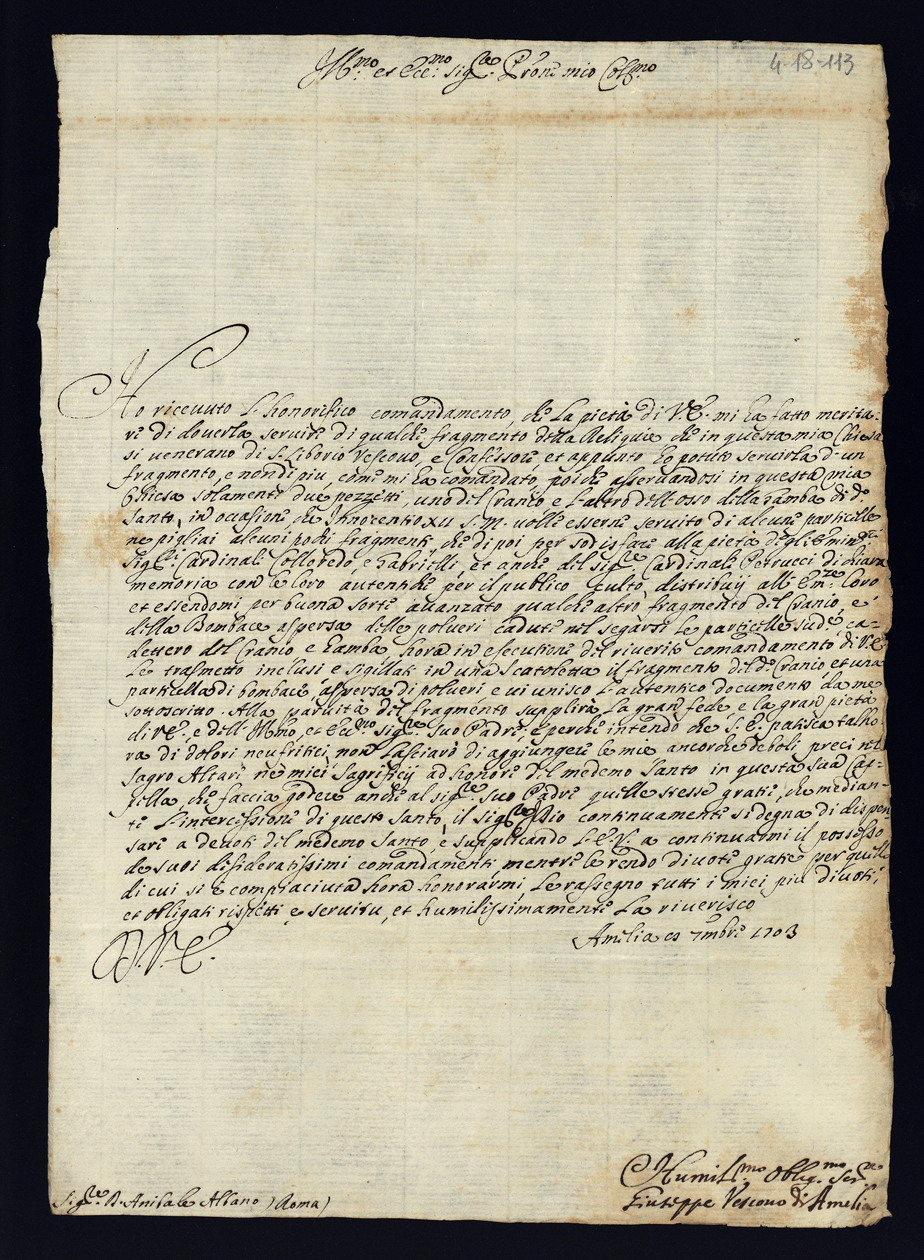 Ill.mo et Ecc.mo Sig.re P.rone mio Col.mo
4-18-113
Ho riceuuto l'honorifico comandamento, che la pietà di V.E. mi ha fatto merita-
re di douerla seruire di qualche fragmento della Reliquie che in questa mia Chiesa
si uenerano di S. Liborio Vescouo, e Confessore et appunto ho potuto seruirla d'un
fragmento, e non di piu, come mi ha comandato, poiche asseruandosi in questa mia
Chiesa solamente due pezzetti, uno del Cranio e l'altro dell'osso della gamba di d.o
Santo, in occasione che Innocentio XII S.M. uolle esserne seruito di alcune particelle
ne pigliai alcuni pochi fragmenti che di poi per sodisfare alla pietà degli Emin.mi
Sig.ri Cardinali Colloredo, e Gabrielli, et anche del sig.re Cardinale Petrucci di chiara
memoria con le loro autentiche per il publico culto, distribuij all' Em.ze loro
et essendomi per buona sorte auanzato qualche altro fragmento del Cranio, e
della Bombace aspersa delle polueri cadute nel segarsi le particelle sud.e ca-
dettero del Cranio e Gamba, hora in esecutione del riuerito comandamento di V.E.
le trasmetto inclusi e sigillati in una scatoletta il fragmento del d.o Cranio et una
particella di bombace aspersa di polueri e ui unisco l'autentico documento da me
sottoscritto. Alla paruità del fragmento supplirà la gran fede e la gran pietà
di V.E., e dell'Ill.mo, et Ecc.mo Sig.re suo Padre. E perche intendo che S.E. patisca talho-
ra di dolori neufritici, non lasciarò di aggiungere le mie ancorche deboli preci nel
sagro Altare ne miei sagrificij ad honore del medemo Santo in questa sua Cap-
pella, che faccia godere anche al sig.re suo Padre quelle stesse gratie, che median-
te l'intercessione di questo Santo, il Sig.re Iddio continuamente si degna di dispen
sare a deuoti del medemo Santo, e supplicando l'E.V. a continuarmi il possesso
de suoi desideratissimi comandamenti mentre le rendo diuote gratie per quello
di cui si è compiaciuta hora honorarmi, le rassegno tutti i miei piu diuoti,
et obligati rispetti e seruitu, et humilissimamente la riuerisco
Amelia 7mbre 1703
D.V.E.
Humil.mo Oblig.mo Ser.re
Giuseppe Vescouo di Amelia
S.gre D. Anibale Albano (Roma)